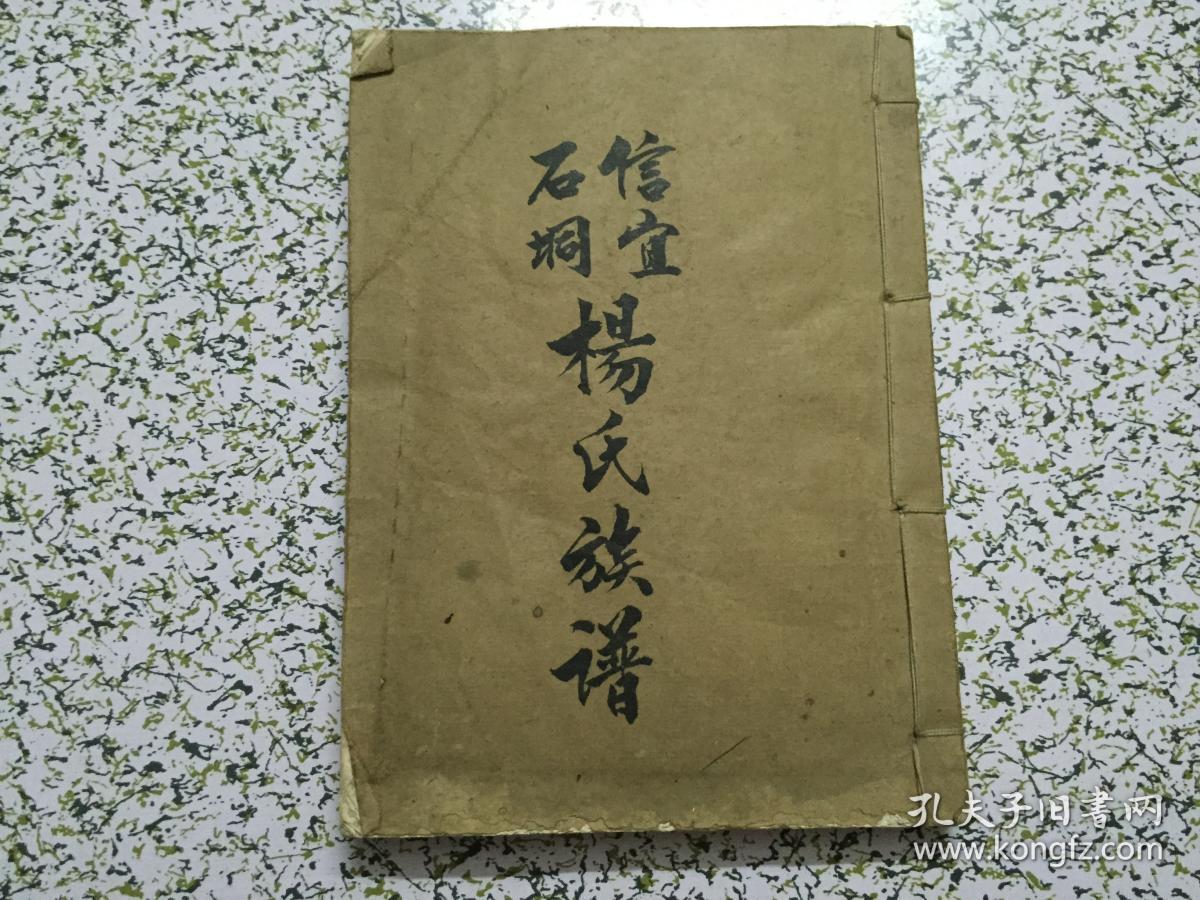 信宜
石垌
楊氏族谱
孔夫子旧書网
www.kongfz.com